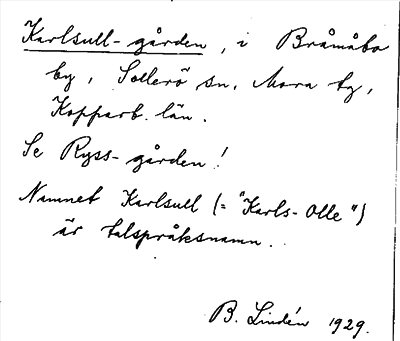 Karlsull-gården, i Bråmåbo
by, Sollerö sn, Mora tg,
Kopparb. län.
Se Ryss-gården!
Namnet Karlsull (= "Karls-Olle")
är talspråksnamn.
B. Lindén 1929.